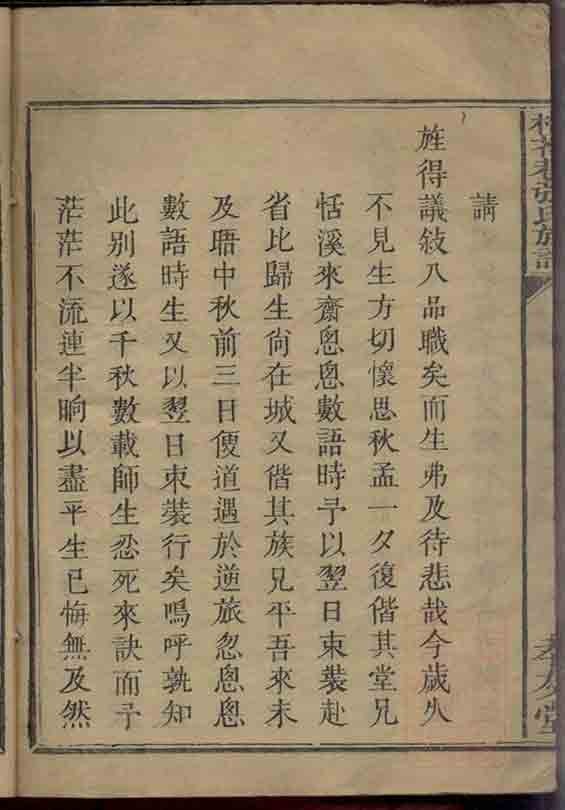 氏族譜
孝友堂
請
旌得議敍八品職矣而生弗及待悲哉今歲久
不見生方切懷思秋孟一夕復偕其堂兄
恬溪來齋悤悤數語時予以翌日束裝赴
省比歸生尙在城又偕其族兄平吾來未
及晤中秋前三日便道遇於逆旅忽悤悤
數語時生又以翌日束裝行矣嗚呼孰知
此別遂以千秋數載師生忍死來訣而予
茫茫不流連半晌以盡平生已悔無及然